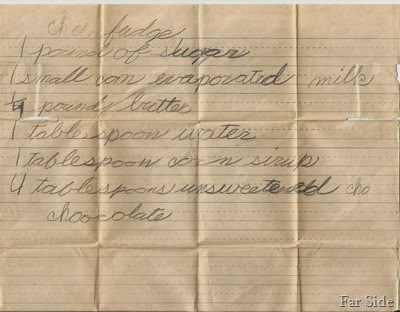 Cho. fudge
1 pound of sugar
1 small can evaporated milk
4 pound butter
1 table spoon water
1 tablespoon corn sirup
4 tablespoons unsweetened cho
choocolate
Far Side